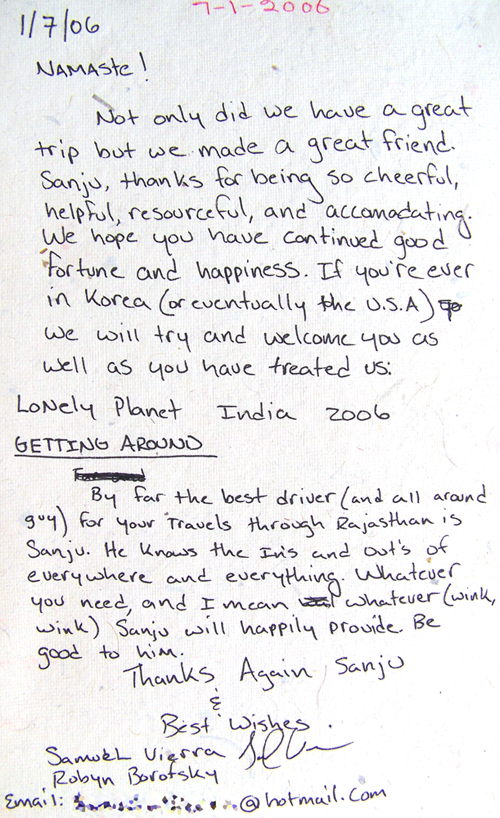 7-1-2006
1/7/06
NAMASte!
Not only did we have a great
trip but we made a great friend.
Sanju, thanks for being so cheerful,
helpful, resourceful, and accomadating.
We hope you have continued good
fortune and happiness. If you're ever
in Korea (or eventually the U.S.A)
we will try and welcome you as
well as you have treated us:
LoNely Planet India 2006
GETTING AROUND
By far the best driver (and all around
guy) for your Travels through Rajasthan is
Sanju. He knows the In's and Out's of
everywhere and everything. Whatever
you need, and I mean whatever (wink,
wink) Sanju will happily provide. Be
good to him.
Thanks Again Sanju
&
Best Wishes.
Samuel Vierra
Robyn Borofsky
Email: @hotmail.com